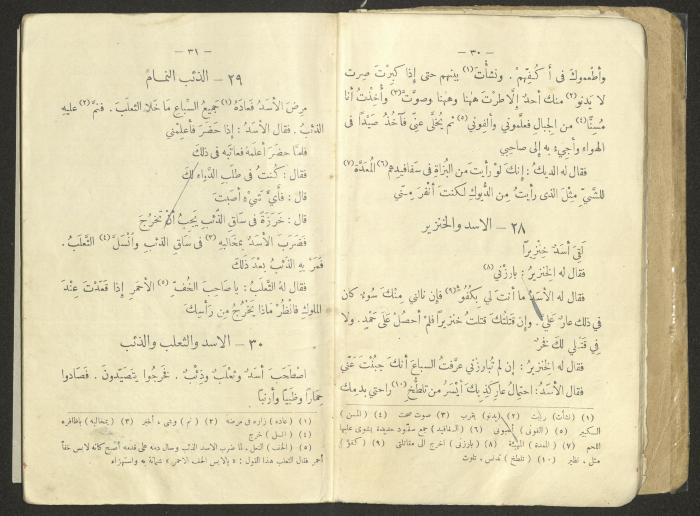 — ٣٠ —
وأطعموك فى أكفهم . ونشأت (١) بينهم حتى إذا كبرت صرت
لا يدنو (٢) منك أحد إلا طرت ههنا وههنا وصوت (٣) وأخذت أنا
مسنًا (٤) من الجبال فعلموني وألفوني (٥) ثم يخلى عني فآخذ صيدًا فى
الهواء وأجيء به إلى صاحبي
فقال له الديك : إنك لو رأيت من البزاة فى سفافيدهم (٦) المعدة (٧)
للشي مثل الذى رأيت من الديوك لكنت أنفر مني
٢٨ — الاسد والخنزير
لقى أسد خنزيرًا
فقال له الخنزير : بارزني (٨)
فقال له الأسد ما أنت لي بكفوء (٩) فإن نالني منك سوء كان
في ذلك عار علي . وإن قتلتك قتلت خنزيرًا فلم أحصل على حمد . ولا
فى قتلي لك فخر
فقال له الخنزير : إن لم تبارزني عرفت السباع أنك جبنت عني
فقال الأسد : احتمال عار كذبك أيسر من تلطخ (١٠) راحتي بدمك
(١) (نشأت) ربيت (٢) (يدنو) يقرب (٣) صوت صحت (٤) (المسن)
الكبير (٥) (ألفوني) (٦) (السفافيد) جمع سفود حديدة يشوى عليها
اللحم (٧) (المعدة) المهيئة (٨) (بارزني) اخرج الى مقاتلتي (٩) (كفؤ)
مثل ، نظير (١٠) (تلطخ) تدنس ، تلوث
— ٣١ —
٢٩ — الذئب النمام
مرض الأسد فعاده (١) جميع السباع ما خلا الثعلب . فنم (٢) عليه
الذئب . فقال الأسد : إذا حضر فأعلمني
فلما حضر أعلمه فعاتبه فى ذلك
فقال : كنت فى طلب الدواء لك
قال : فأي شيء أصبت
قال : خرزة فى ساق الذئب يجب أن تخرج
فضرب الأسد بمخالبه (٣) فى ساق الذئب وانسل (٤) الثعلب .
فمر به الذئب بعد ذلك
فقال له الثعلب : يا صاحب الخف (٥) الأحمر إذا قعدت عند
الملوك فانظر ماذا يخرج من رأسك
٣٠ — الاسد والثعلب والذئب
اصطحب أسد وثعلب وذئب . فخرجوا يتصيدون . فصادوا
حمارًا وظبيًا وأرنبًا
(١) (عاده) زاره فى مرضه (٢) (نم) وشى ، أخبر (٣) (بمخالبه) باظافره
(٤) (انسل) خرج
(٥) (الخف) النعل . لما ضرب الاسد الذئب وسال دمه على قدمه أصبح كانه لابس خفاً
أحمر فقال الثعلب هذا القول : « يالابس الخف الاحمر » شماتة به واستهزاء